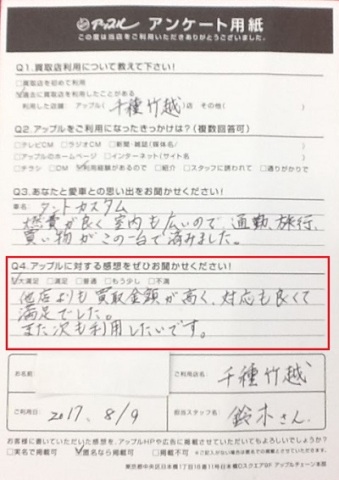 アップル アンケート用紙
この度は当店をご利用いただきありがとうございました。
Q1.買取店利用について教えて下さい!
□買取店を初めて利用
☑過去に買取店を利用したことがある
利用した店舗: アップル(千種竹越)店 その他( )
Q2.アップルをご利用になったきっかけは?(複数回答可)
□テレビCM □ラジオCM □新聞・雑誌(媒体名/ )
□アップルのホームページ □インターネット(サイト名 )
□チラシ □DM ☑利用経験があるので □紹介 □スタッフに誘われて □通りがかりで
Q3.あなたと愛車との思い出をお聞かせください!
車名: タントカスタム
燃費が良く室内も広いので通勤、旅行、
買い物がこの一台で済みました。
Q4.アップルに対する感想をぜひお聞かせください!
☑大満足 □満足 □普通 □もう少し □不満
他店よりも買取金額が高く、対応も良くて
満足でした。
また次も利用したいです。
お名前
ご利用店名: 千種竹越
ご利用日: 2017. 8/9
担当スタッフ名: 鈴木さん
お客様に書いていただいた感想を、アップルHPや広告に掲載させていただいてもよろしいでしょうか?
□実名で掲載可 ☑匿名なら掲載可 □掲載不可
東京都中央区日本橋1丁目16番11号日本橋Dスクエア9F アップルチェーン本部